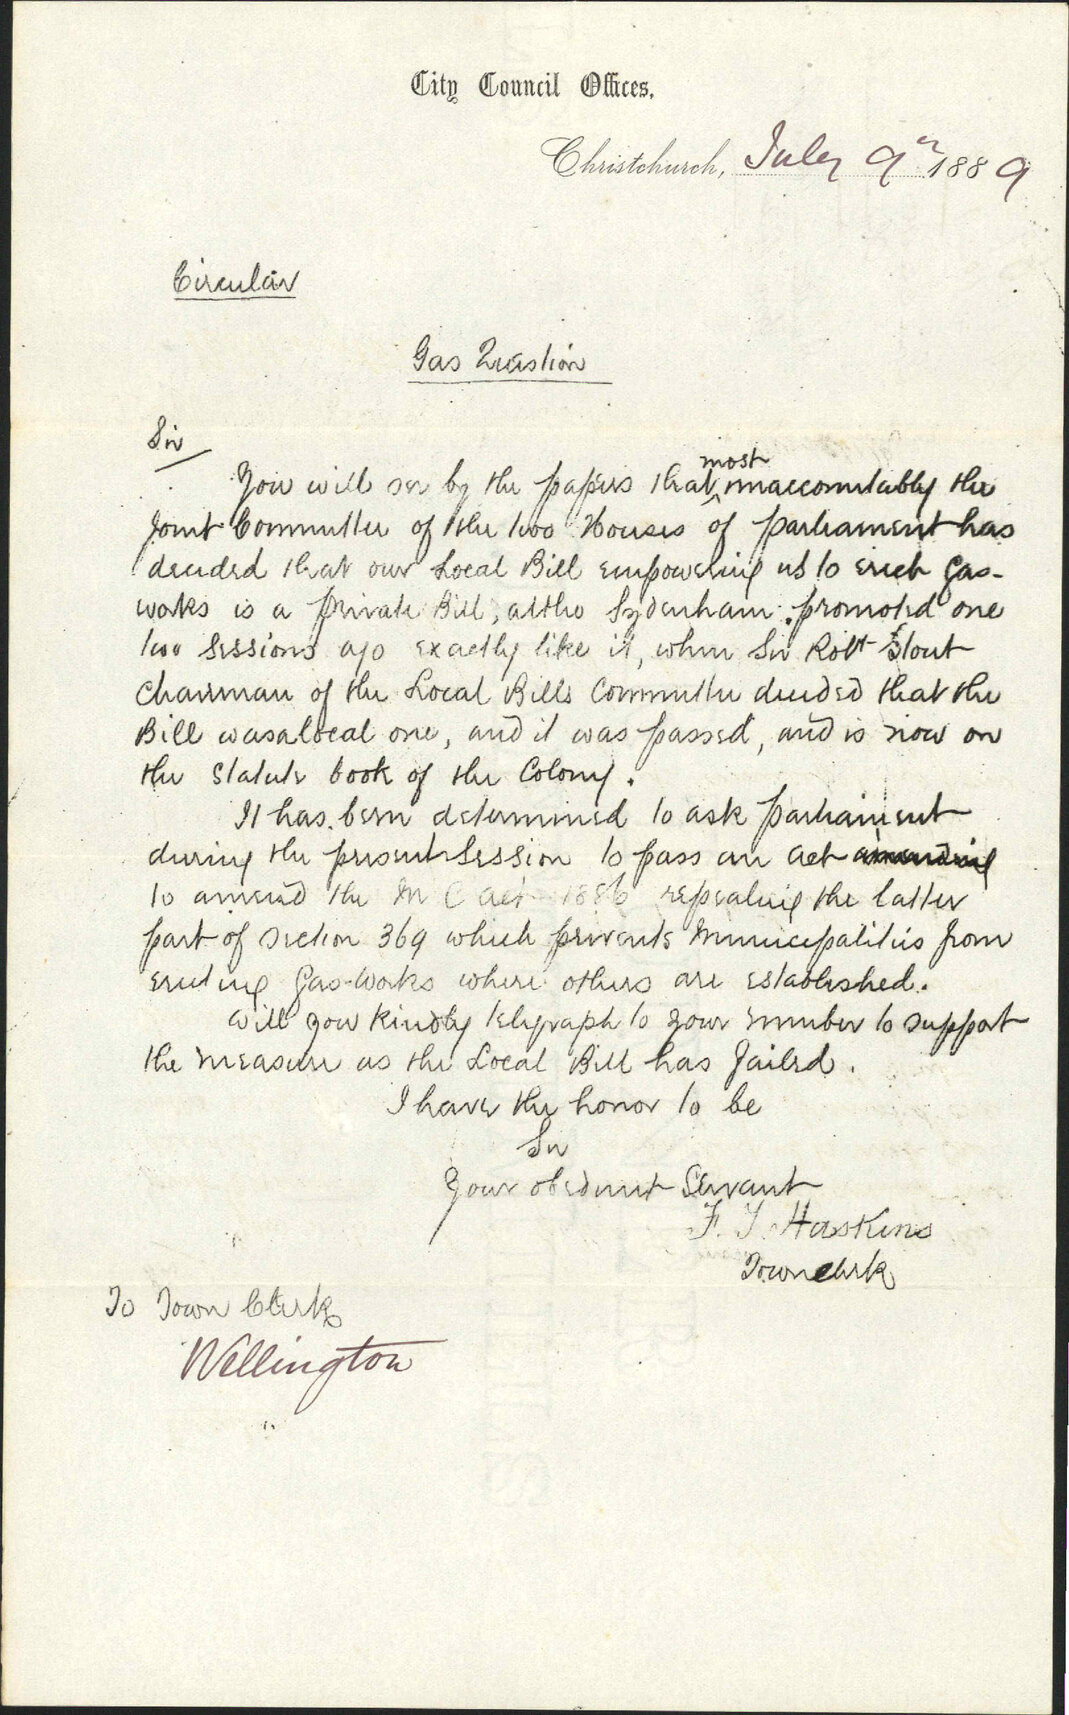 City Council Offices.
Christchurch, July 9th 1889
Circular
Gas Question
Sir
You will see by the papers that most unaccountably the
Joint Committee of the two Houses of parliament has
decided that our Local Bill empowering us to erect Gas-
works is a private Bill, altho Sydenham promoted one
two sessions ago exactly like it, when Sir Robt Stout
Chairman of the Local Bills Committee decided that the
Bill was a local one, and it was passed, and is now on
the statute book of the Colony.
It has been determined to ask parliament
during the present Session to pass an act amending
to amend the M C act 1886 repealing the latter
part of section 369 which prevents Municipalities from
erecting Gas-works where others are established.
Will you kindly telegraph to your member to support
the measure as the Local Bill has failed.
I have the honor to be
Sir
Your obedient Servant
F. T. Haskins
Town Clerk
To Town Clerk
Wellington